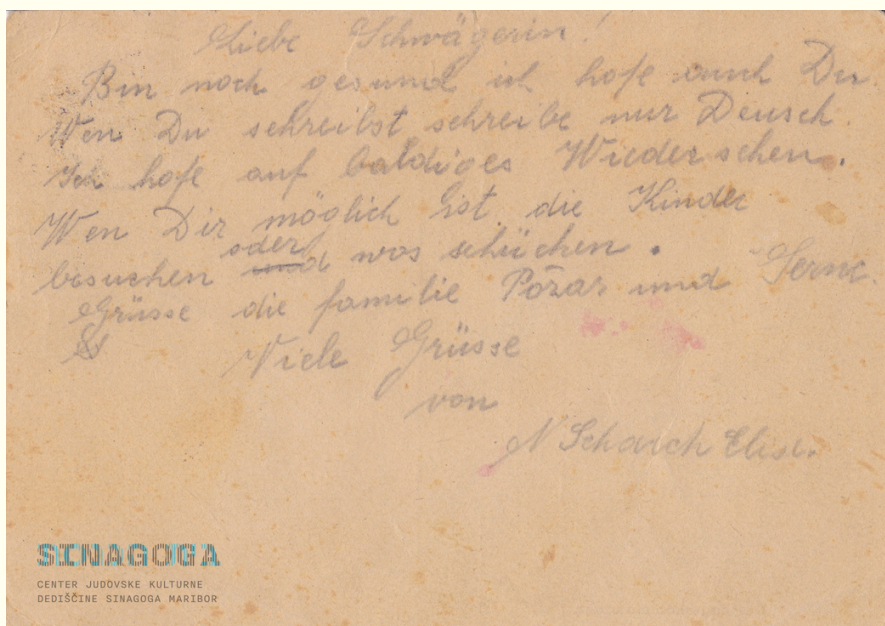 Liebe Schwägerin!
Bin noch gesund ich hofe auch Du
Wen Du schreibst schreibe nur Deusch
Ich hofe auf baldiges Wiedersehen.
Wen Dir möglich ist die Kinder
oder
besuchen und was schücken.
Grüsse die familie Požar und
Viele Grüsse
von
Elise.
SINAGOGA
CENTER JUDOVSKE KULTURNE
DEDIŠČINE SINAGOGA MARIBOR